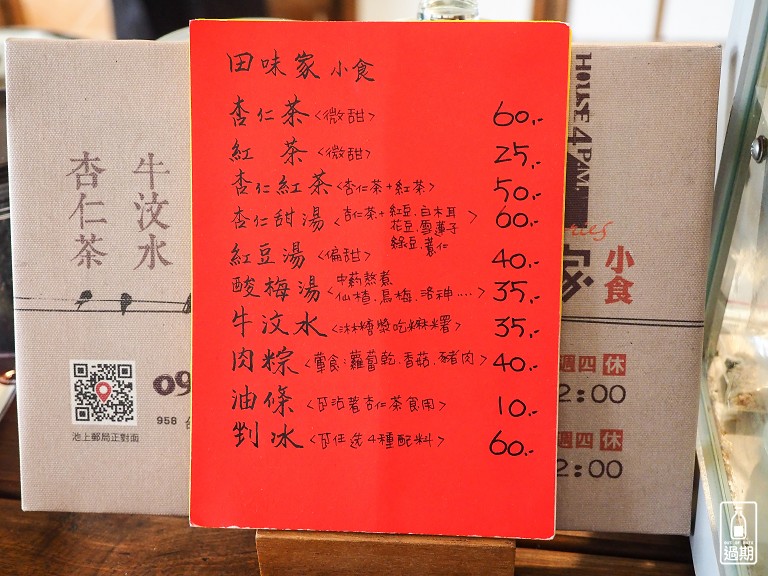 田味家 小食
杏仁茶<微甜> 60.-
紅 茶<微甜> 25.-
杏仁紅茶<杏仁茶+紅茶> 50.-
杏仁甜湯<杏仁茶+紅豆.白木耳 花豆.雪蓮子 綠豆.薏仁> 60.-
紅豆湯<偏甜> 40.-
酸梅湯<中药熬煮 仙楂.烏梅.洛神....> 35.-
牛汶水<淋糖漿吃麻糬> 35.-
肉粽<葷食:蘿蔔乾.香菇.豬肉> 40.-
油條<可沾著杏仁茶食用> 10.-
剉冰<可任选4種配料> 60.-
牛汶水
杏仁茶
09
958
池上郵局正對面
HOUSE 4 PAM
家
小食
週四 休
2:00
週四 休
2:00
過期